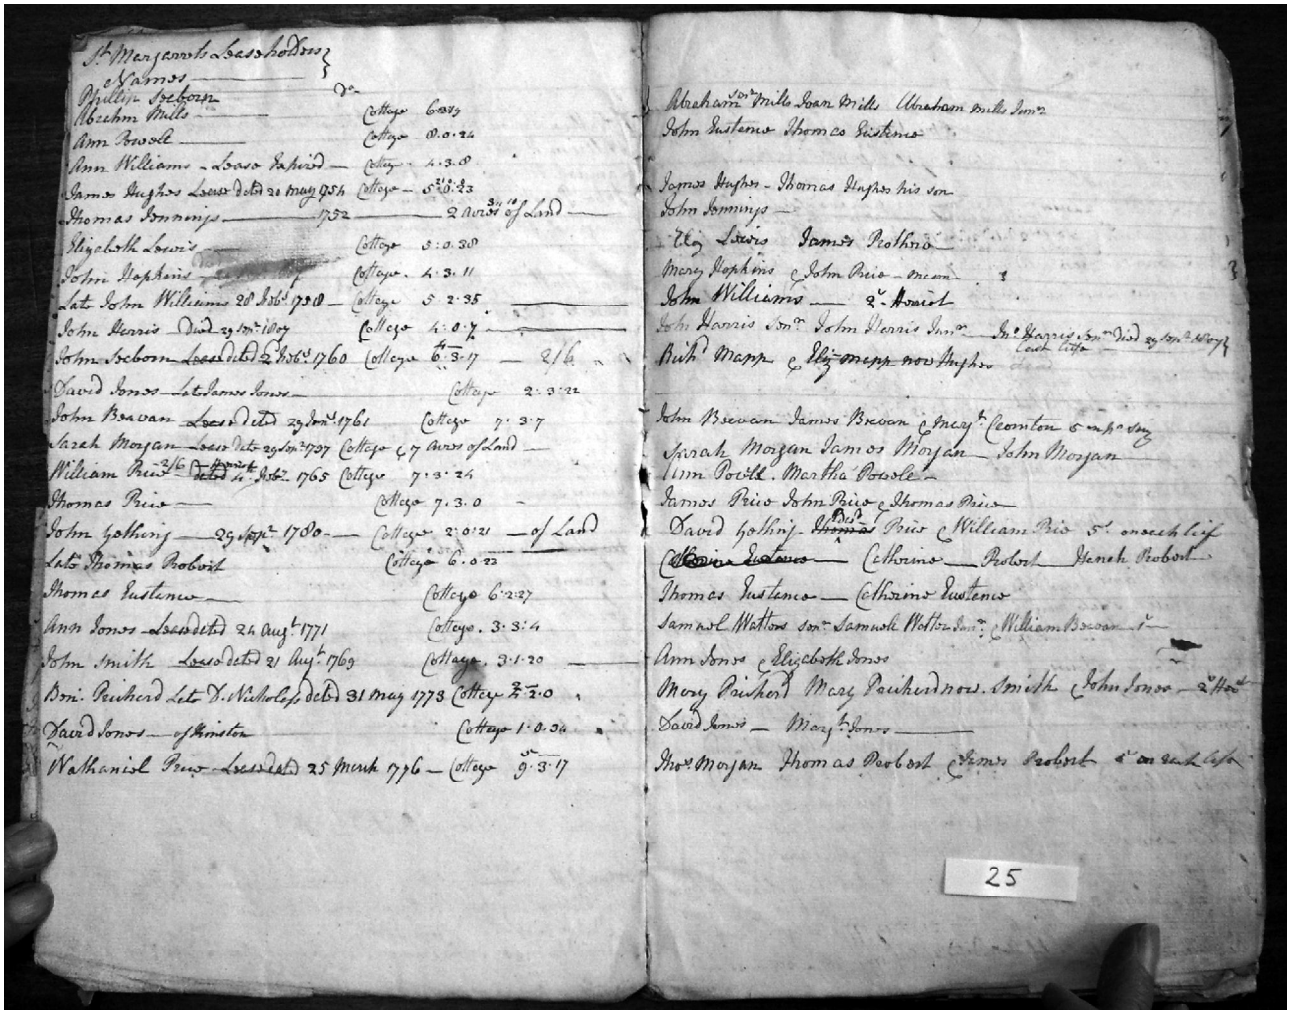 St Margarets Leaseholders
Names
Phillip Seeborn Do
Abrahm Mills Cottage
Ann Powell Cottage 8.0.24
Ann Williams - Lease Expired - Cottage 4.3.8
James Hughes Lease dated 20 May 1754 Cottage - 5.0.23
Thomas Jennings 1752 2 Acres of Land
Elizabeth Lewis Cottage 5.0.38
John Hopkins Cottage. 4.3.11
Late John Williams 28 Febr. 1758 - Cottage 5.2.35
John Harris Died 29 1807 Cottage 4.0.7
John Seeborn Lease dated 2 Febr. 1760 Cottage 6.3.17 - 2/6
David Jones - Late James Jones - Cottage 2.3.22
John Beavan Lease dated 29 1761 Cottage 7.3.7
Sarah Morgan Lease date 29 Cottage & 7 Acres of Land
William Price - 2/6 dated 4 Febr. 1765 Cottage 7.3.24
Thomas Price - Cottage 7.3.0
John Gething - 29 1780 - Cottage 2.0.21 - of Land
Late Thomas Probert Cottage 6.0.23
Thomas Eustance Cottage 6.2.27
Ann Jones - Lease dated 24 Augt. 1771 Cottage. 3.3.4
John Smith Lease dated 21 Augt. 1769 Cottage. 3.1.20
Benj. Prichard Late D. Nicholas dated 31 May 1773 Cottage
David Jones - of Kinston Cottage 1.0.34
Nathaniel Price - Lease dated 25 March 1776 - Cottage 9.3.17
Abraham Senr Mills Joan Mills Abraham Mills Junr
John Eustance Thomas Eustance
James Hughes - Thomas Hughes his son
John Jennings -
Eliz Lewis James Prothero
Mary Hopkins & John Price -
John Williams - 2d Heriot
John Harris Senr John Harris Junr - Jno Harris Senr Died 29 1807
each life
Richd Mapp & Eliz Mapp now Hughes
John Beavan James Bevan & Maryt
Sarah Morgan James Morgan - John Morgan
Ann Powell. Martha Powell -
James Price John Price & Thomas Price
David Gething Thomas Price & William Price 5s on each life
Catherine Eustance Catherine Probert
Thomas Eustance - Catherine Eustance
Samuel Watters Senr Samuell Watters Junr & William Beavan
Ann Jones & Elizabeth Jones
Mary Prichard Mary Prichard now Smith & John Jones -
David Jones - Jones
Thos. Morgan Thomas Probert & James Probert 5s on each life
25